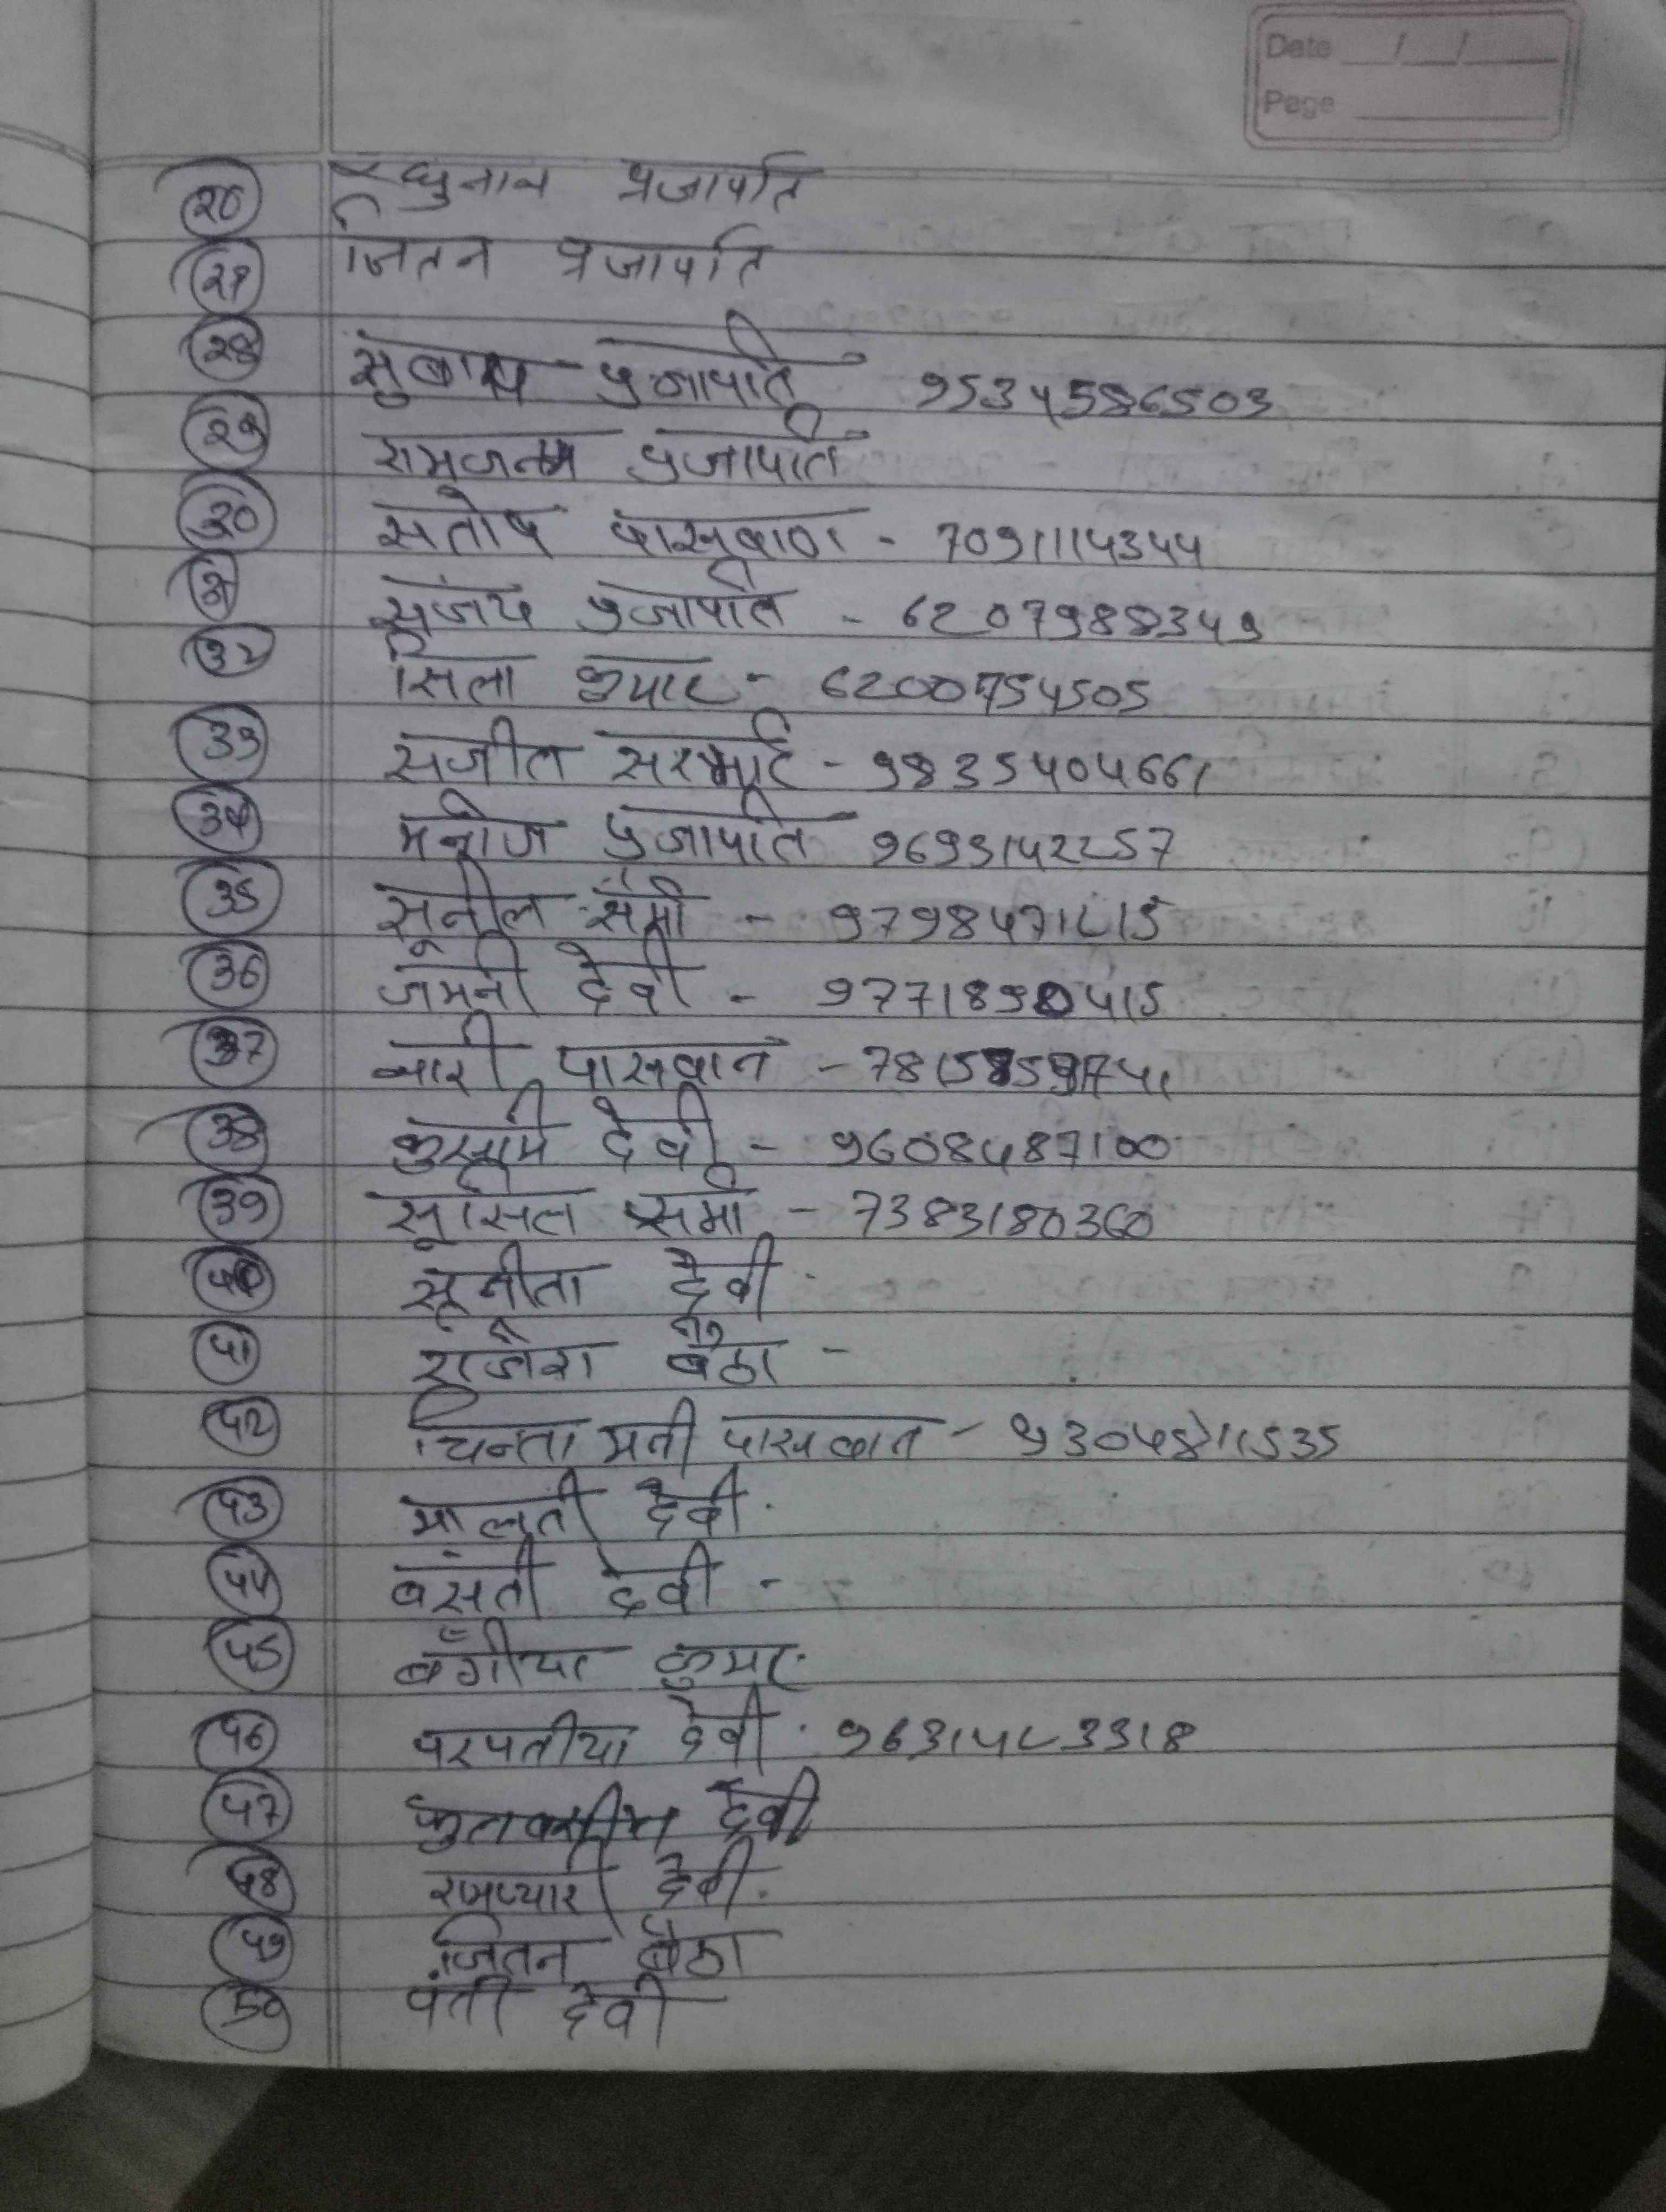 Date / /
Page
२६ रघुनाथ प्रजापति
२७ जितन प्रजापति
२८ सुबाष प्रजापति 9534586503
२९ रामजनम प्रजापति
३० सतोष पासवाण - 7091114344
३१ संजय प्रजापति - 6207988349
३२ सिला - 6200754505
३३ सजीत - 9835404661
३४ मनोज प्रजापति 9693142257
३5 सूनील सर्मा - 9798471215
३6 जमनी देवी - 9771890415
३7 नारी पासवान -
३8 कुसुमि देवी - 9608487100
३9 सूसिल समा - 7383180360
४० सूनीता देवी
४१ राजेश बैठा -
४२ चिन्ता मनी पासवान - 9304811535
४३ मालती देवी
४४ बसंती देवी -
४5 कुमार
४6 परपतीया देवी 9631423318
४7 देवी
४8 रामप्यारी देवी
४9 जितन बैठा
5० पंती देवी